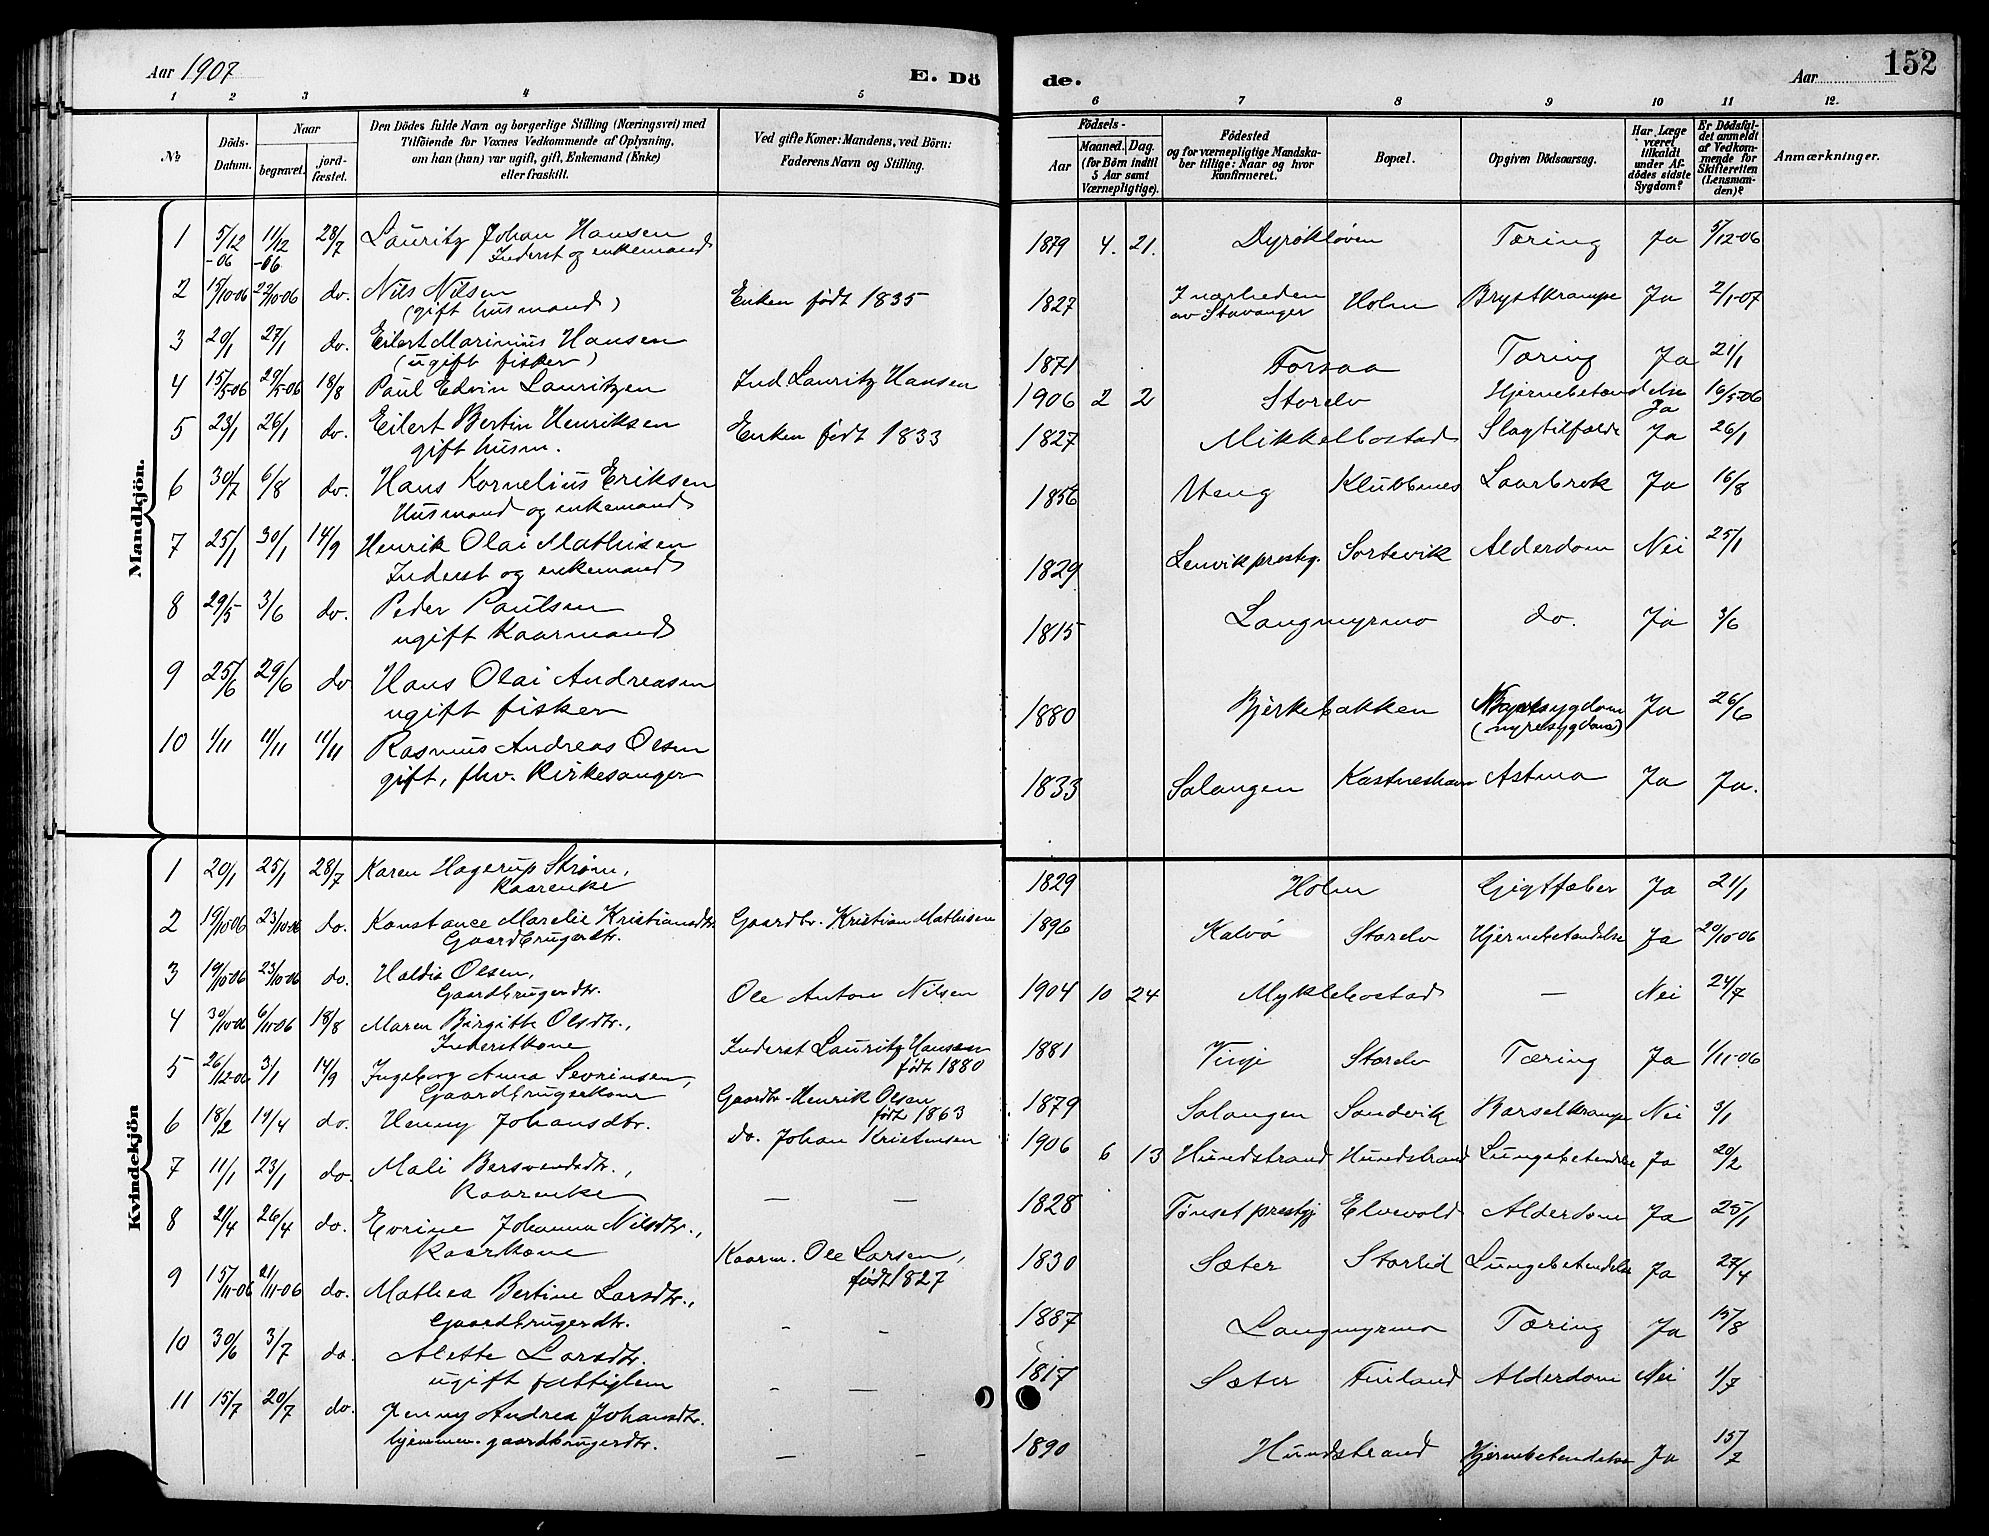 Aar 1907
E. Dö
de.
Aar
152
1 2 3 4 5
6 7 8 9 10 11 12.
№
Döds-Datum.
Naar
begravet.
jordfæstet.
Den Dödes fulde Navn og borgerlige Stilling (Næringsvei) med
Tilföiende for Voxnes Vedkommende af Oplysning,
om han (hun) var ugift, gift, Enkemand (Enke)
eller fraskilt.
Ved gifte Koner: Mandens, ved Börn:
Faderens Navn og Stilling.
Födsels-
Aar
Maaned. Dag.
(for Börn indtil
5 Aar samt
Værnepligtige).
Födested
og for værnepligtige Mandska-
ber tillige: Naar og hvor
konfirmeret.
Bopæl.
Opgiven Dödsaarsag.
Har Læge
været
tilkaldt
under Af-
dödes sidste
Sygdom?
Er Dödsfal-
det anmeldt
af Vedkom-
mende for
Skifteretten
(Lensman-
den)?
Anmærkninger.
Mandkjön.
1 5/12-06 11/12-06 28/7 Lauritz Johan Hansen 1879 4. 21. Dyrøkløven Tæring Ja 5/12-06
Inderst og enkemand
2 15/10-06 22/10-06 do. Nils Nilsen Enken født 1835 1827 I nærheden Holm Brystkrampe Ja 2/1-07
(gift husmand) av Stavanger
3 20/1 27/1 do. Eilert Marinius Hansen 1871 Forsaa Tæring Ja 21/1
(ugift fisker)
4 15/5-06 29/5-06 18/8 Paul Edvin Lauritzen Ind Lauritz Hansen 1906 2 2 Storelv Hjernebetændelse Ja 16/5-06
5 23/1 26/1 do. Eilert Bertin Henriksen Enken født 1833 1827 Mikkelbostad Slagtilfælde Ja 26/1
gift husm.
6 30/7 6/8 do. Hans Kornelius Eriksen 1856 Klubbenes Ja 16/8
Husmand og enkemand
7 25/1 30/1 14/9 Henrik Olai Mathisen 1829 Lenvik prestg. Sortevik Alderdom Nei 25/1
Inderst og enkemand
8 29/5 3/6 do. Peder Paulsen 1815 Langmyrmo do. Ja 3/6
ugift Kaarmand
9 25/6 29/6 do Hans Olai Andreasen 1880 Bjerkebakken Ja 26/6
ugift fisker (nyresygdom)
10 1/11 11/11 11/11 Rasmus Andreas Olsen 1833 Salangen Kastneshavn Astma Ja Ja.
gift, fhv. Kirkesanger
Kvindekjön
1 20/1 25/1 28/7 Karen Hagerup Strøm, 1829 Holm Gigtfeber Ja 21/1
Kaarenke
2 19/10-06 23/10-06 do. Konstance Marelie Kristiansdtr. Gaardbr. Kristian Mathisen 1896 Kalvø Storelv Hjernebetændelse Ja 20/10-06
Gaardbrugerdtr.
3 19/10-06 23/10-06 do. Haldis Olsen, Ole Anton Nilsen 1904 10 24 Myklebostad — Nei 24/7
Gaardbrugerdtr.
4 30/10-06 6/11-06 18/8 Maren Birgitte Olsdtr., Inderst Lauritz Hansen 1881 Storelv Tæring Ja 1/11-06
Inderstkone født 1880
5 26/12-06 3/1 14/9 Ingeborg Anna Sevrinsen, Gaardbr. Henrik Olsen 1879 Salangen Sandvik Barselkrampe Nei 3/1
Gaardbrugerkone født 1863
6 18/2 14/4 do. Henny Johansdtr. do. Johan Kristensen 1906 6 13 Hundstrand Hundstrand Lungebetændelse Ja 20/2
7 11/1 23/1 do. Mali Bersvendsdtr., — — 1828 Tønset prestgj Elvevold Alderdom Ja 25/1
Kaarenke
8 21/4 26/4 do. Evrine Johanna Nilsdtr., Kaarm. Ole Larsen, 1830 Sæter Storlid Lungebetændelse Ja 27/4
Kaarkone født 1827
9 15/11-06 21/11-06 do. Mathea Bertine Larsdtr., - - 1887 Langmyrmo Tæring Ja 15/8
Gaardbrugerdtr.
10 30/6 3/7 do. Alette Larsdtr. - — 1817 Sæter Finland Alderdom Nei 1/7
ugift fattiglem
11 15/7 20/7 do. Jenny Andrea Johansdtr. — — 1890 Hundstrand Hjernebetændelse Ja 15/7
hjemmev. gaardbrugerdtr.